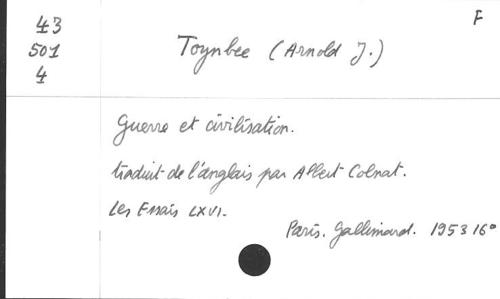 F
43
501
4
Toynbee (Arnold J.)
Guerre et civilisation.
traduit de l'anglais par Albert Colnat.
Les Essais LXVI.
Paris. Gallimard. 1953 16°